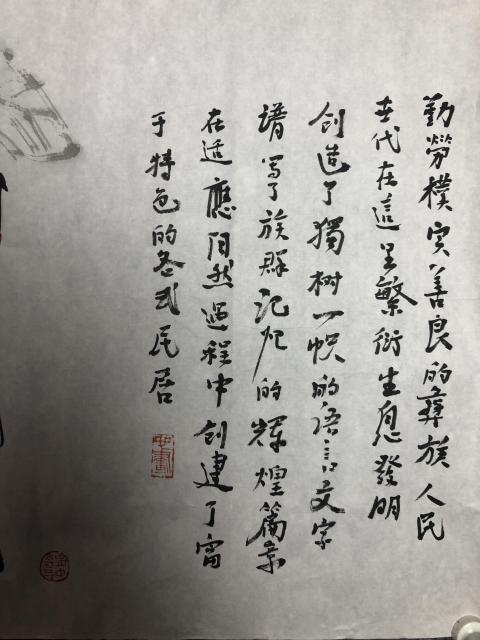 勤勞樸实善良的彝族人民
世代在這里繁衍生息發明
创造了獨树一帜的语言文字
谱写了族群记忆的辉煌篇章
在适應自然過程中创建了富
于特色的各式民居